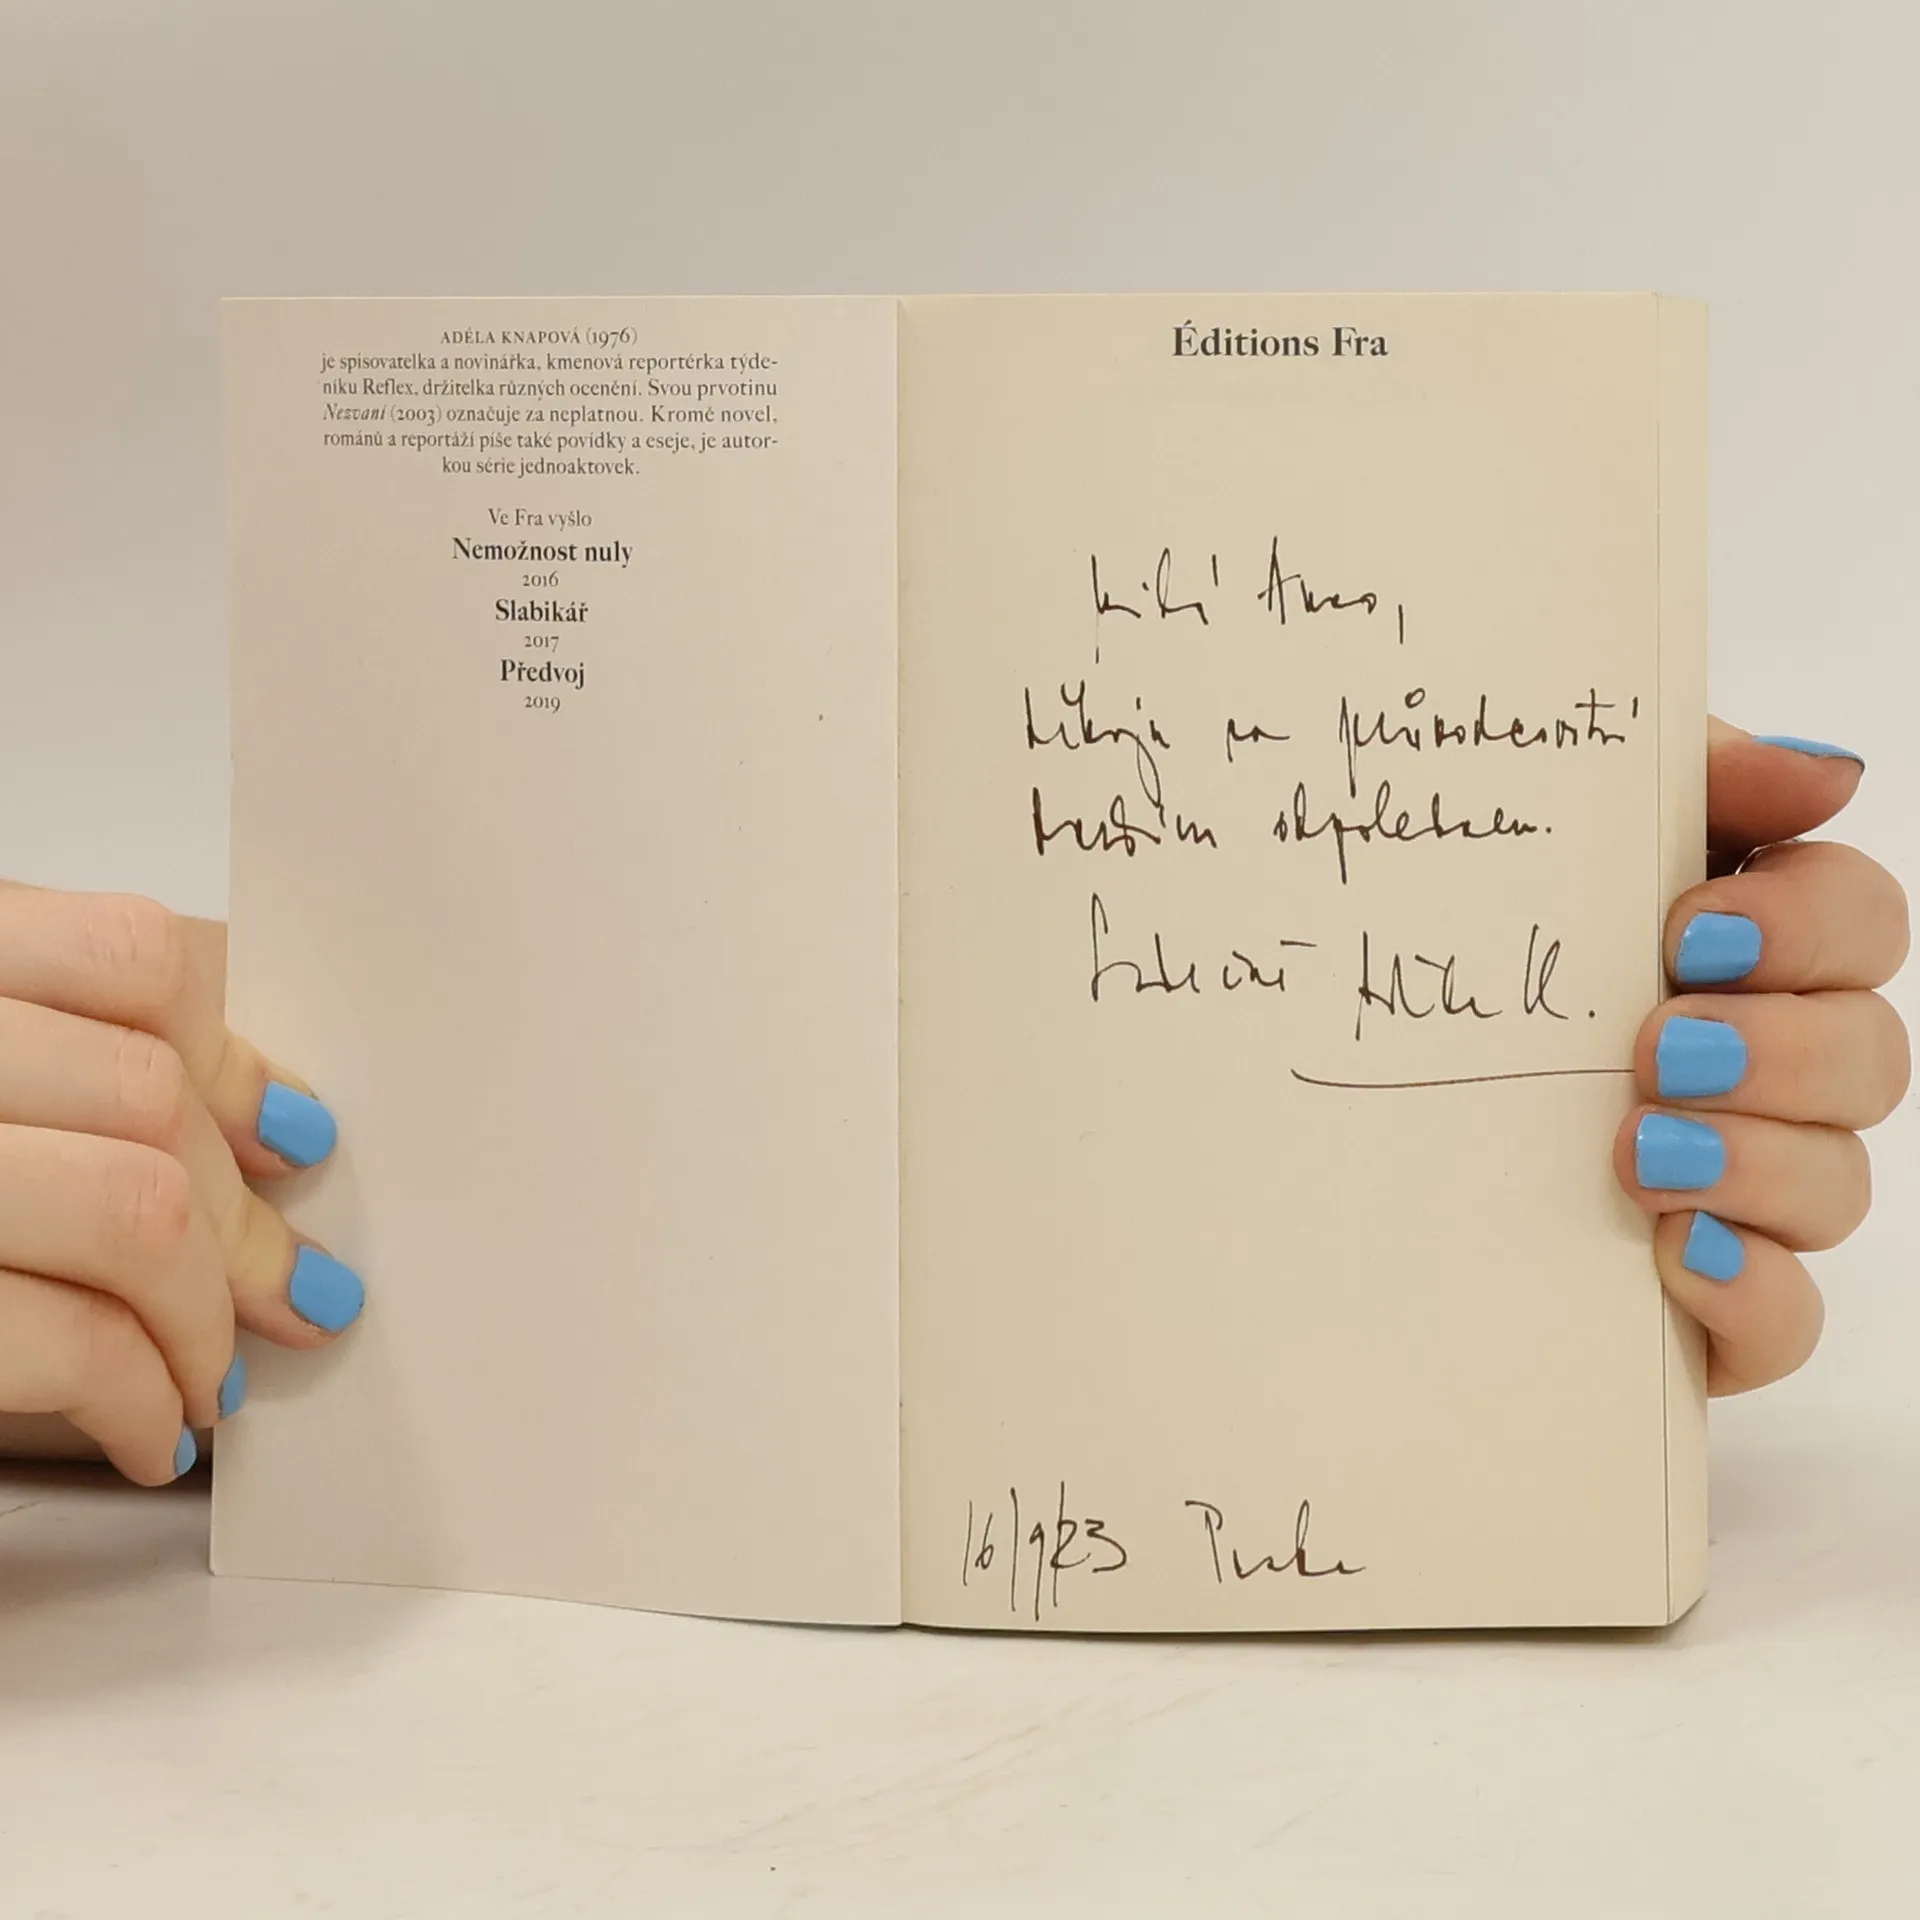 ADÉLA KNAPOVÁ (1976)
je spisovatelka a novinářka, kmenová reportérka týde-
níku Reflex, držitelka různých ocenění. Svou prvotinu
Nezvaní (2003) označuje za neplatnou. Kromě novel,
románů a reportáží píše také povídky a eseje, je autor-
kou série jednoaktovek.
Ve Fra vyšlo
Nemožnost nuly
2016
Slabikář
2017
Předvoj
2019
Éditions Fra
Milá Anno,
děkuji za průvodcovství
dnešním odpolednem.
Srdečně Adéla K.
16/9/23 Praha